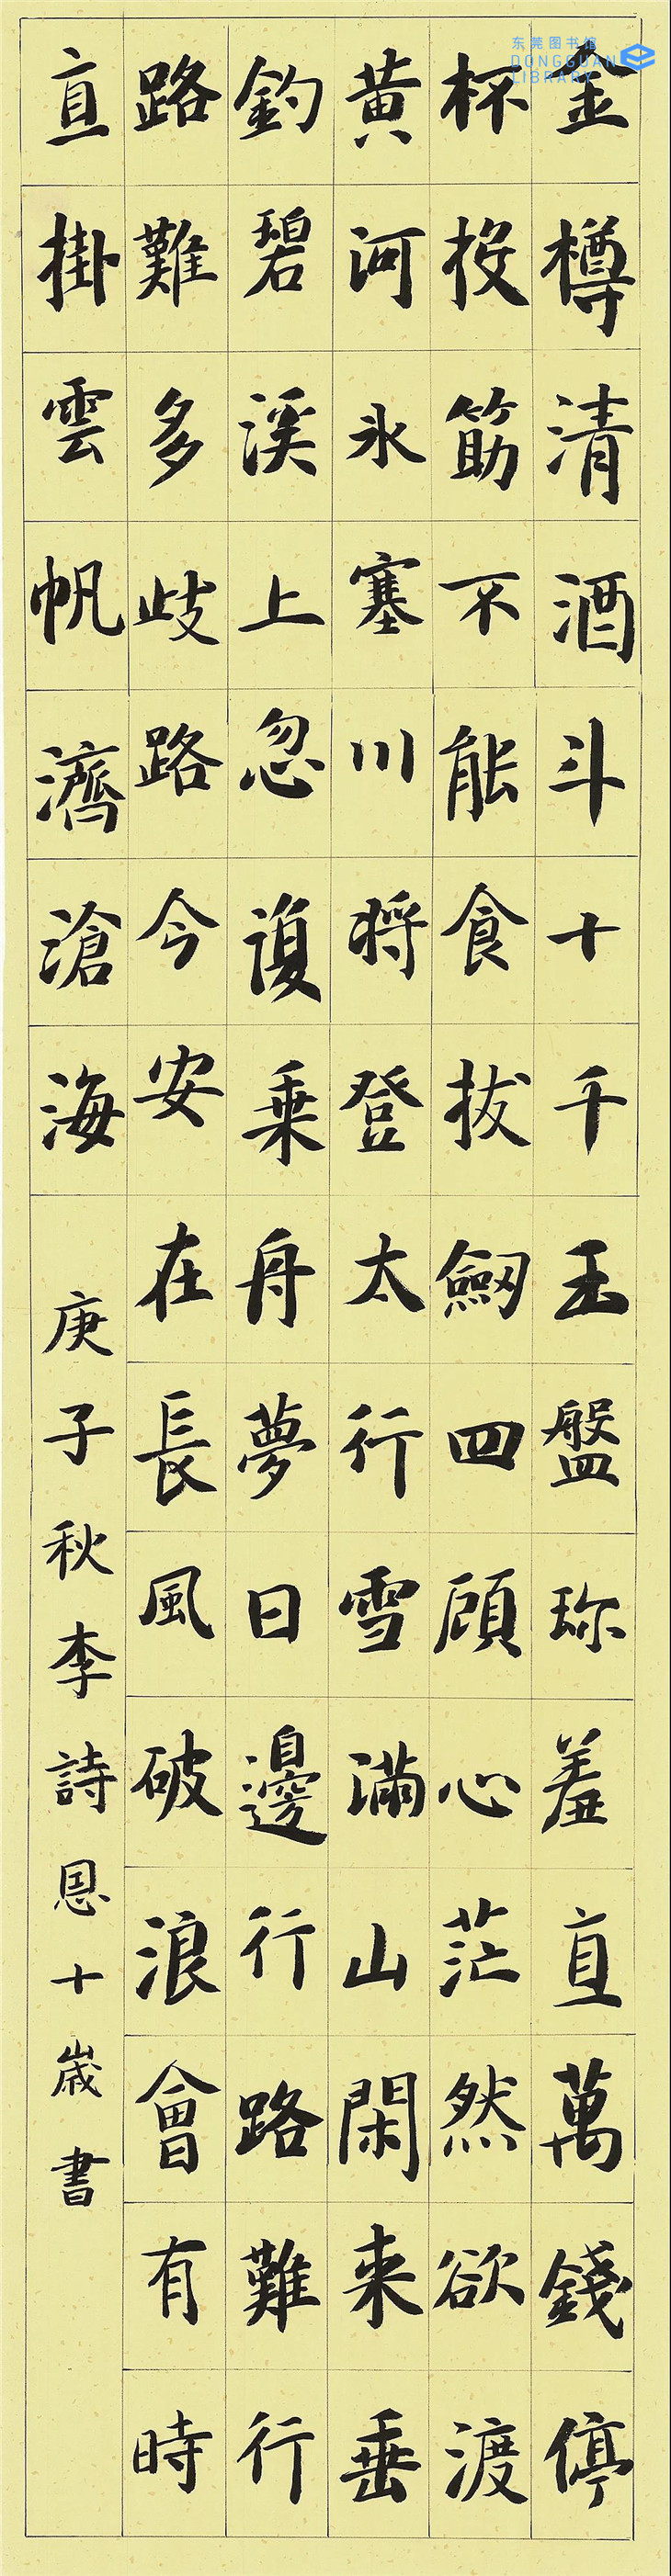 东莞图书馆
DONGGUAN
LIBRARY
金樽清酒斗十千玉盤珎羞直萬錢停
杯投筯不能食拔劒四顧心茫然欲渡
黄河氷塞川将登太行雪滿山閑来垂
釣碧溪上忽復乗舟夢日邊行路難行
路難多歧路今安在長風破浪會有時
直掛雲帆濟滄海
庚子秋李詩恩十歲書